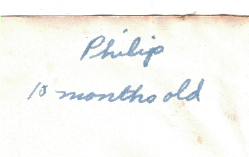 Philip
10 months old